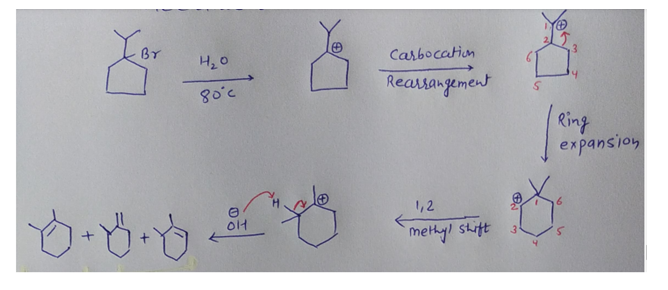 Br
H₂O
80°C
⊕
Carbocation
Rearrangement
⊕
1
2
3
4
5
6
Ring
expansion
⊕
1
2
3
4
5
6
1,2
methyl shift
H
⊕
⊖
OH
+
+